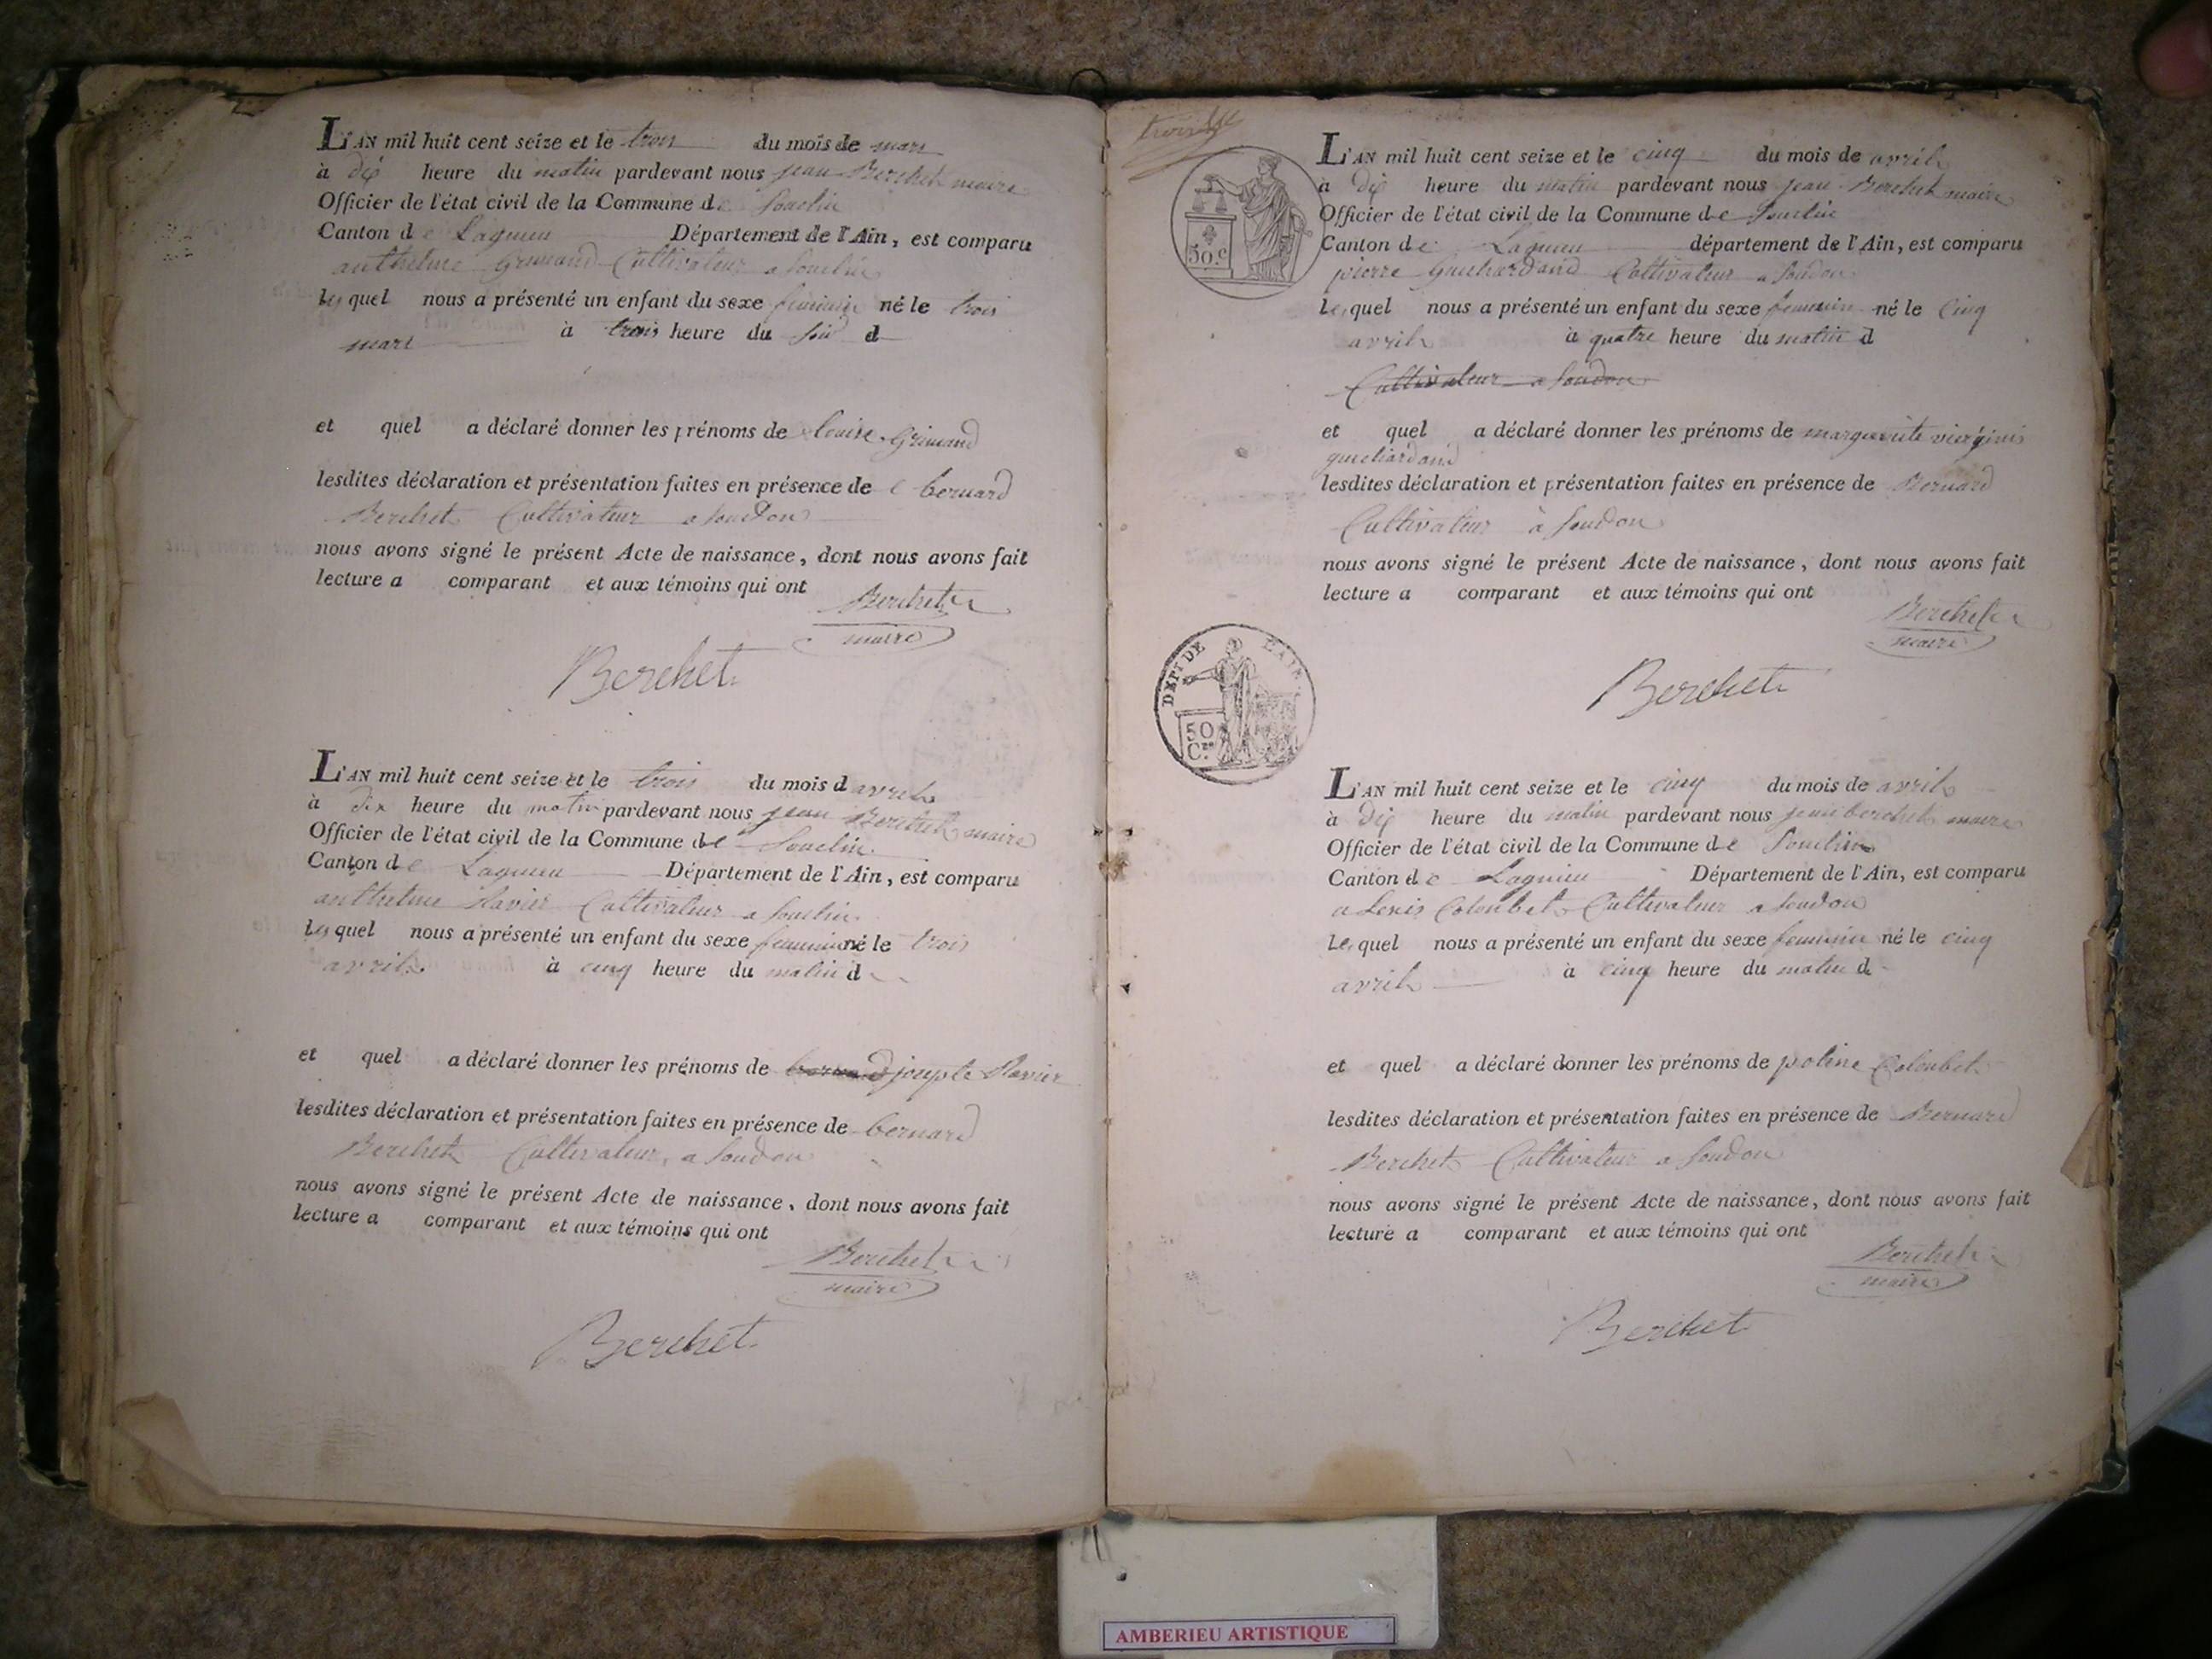 L'AN mil huit cent seize et le trois du mois de mars
à dix heure du matin pardevant nous jean Berchet maire
Officier de l'état civil de la Commune de Souclin
Canton de Lagnieu Département de l'Ain, est comparu
anthelme Grimand Cultivateur a Souclin
lequel nous a présenté un enfant du sexe feminin né le trois
mars à trois heure du soir d
et quel a déclaré donner les prénoms de louise Grimand
lesdites déclaration et présentation faites en présence de bernard
Berchet Cultivateur a Soudon
nous avons signé le présent Acte de naissance, dont nous avons fait
lecture a comparant et aux témoins qui ont
Berchet
maire
Berchet
L'AN mil huit cent seize et le trois du mois d avril
à dix heure du matin pardevant nous jean Berchet maire
Officier de l'état civil de la Commune de Souclin
Canton de Lagnieu Département de l'Ain, est comparu
anthelme Slavier Cultivateur a Souclin
lequel nous a présenté un enfant du sexe feminin né le trois
avril à cinq heure du matin d
et quel a déclaré donner les prénoms de josepte Slavier
lesdites déclaration et présentation faites en présence de bernard
Berchet Cultivateur, a Soudon
nous avons signé le présent Acte de naissance, dont nous avons fait
lecture a comparant et aux témoins qui ont
Berchet
maire
Berchet
trois
50.c
L'AN mil huit cent seize et le cinq du mois de avril
à dix heure du matin pardevant nous jean Berchet maire
Officier de l'état civil de la Commune de Souclin
Canton de Lagnieu département de l'Ain, est comparu
pierre Guichardand Cultivateur a Soudon
Lequel nous a présenté un enfant du sexe feminin né le cinq
avril à quatre heure du matin d
Cultivateur a Soudon
et quel a déclaré donner les prénoms de marguerite
guichardand
lesdites déclaration et présentation faites en présence de Bernard
Cultivateur à Soudon
nous avons signé le présent Acte de naissance, dont nous avons fait
lecture a comparant et aux témoins qui ont
Berchet
maire
Berchet
DÉPT DE L'AIN
50
Ces
L'AN mil huit cent seize et le cinq du mois de avril
à dix heure du matin pardevant nous jean berchet maire
Officier de l'état civil de la Commune de Souclin
Canton de Lagnieu Département de l'Ain, est comparu
Colombet Cultivateur a Soudon
Lequel nous a présenté un enfant du sexe feminin né le cinq
avril à cinq heure du matin d
et quel a déclaré donner les prénoms de poline Colombet
lesdites déclaration et présentation faites en présence de Bernard
Berchet Cultivateur a Soudon
nous avons signé le présent Acte de naissance, dont nous avons fait
lecture a comparant et aux témoins qui ont
Berchet
maire
Berchet
AMBERIEU ARTISTIQUE